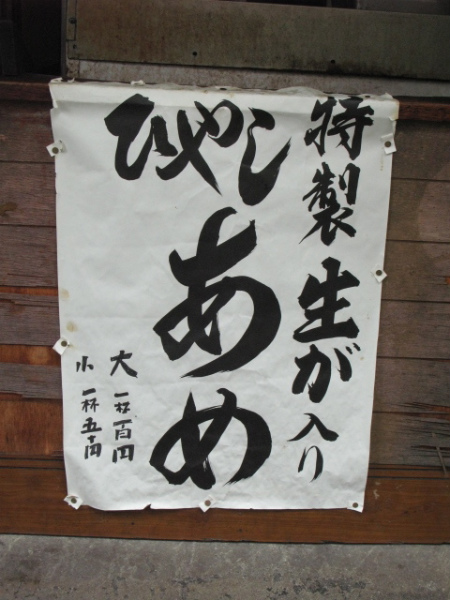 特製 生が入り
ひやし
あめ
大 一杯百円
小 一杯五十円